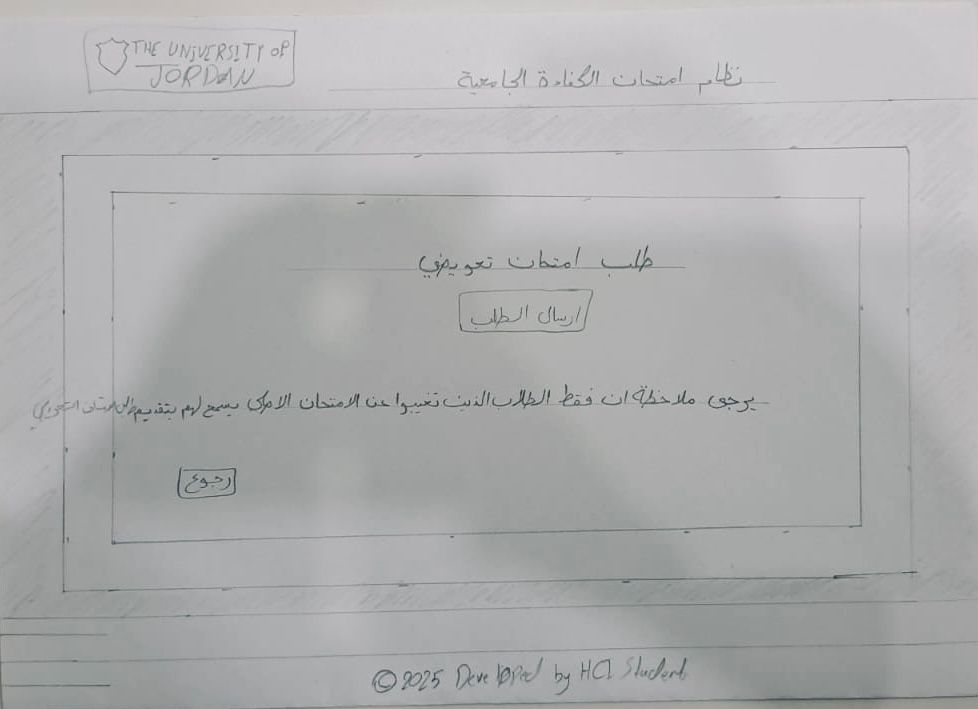 THE UNIVERSITY OF
JORDAN
نظام امتحان الكفاءة الجامعية
طلب امتحان تعويضي
ارسال الطلب
يرجى ملاحظة ان فقط الطلاب الذين تغيبوا عن الامتحان الاصلي يسمح لهم بتقديم طلب امتحان التعويضي
رجوع
© 2025 Developed by HCI Student